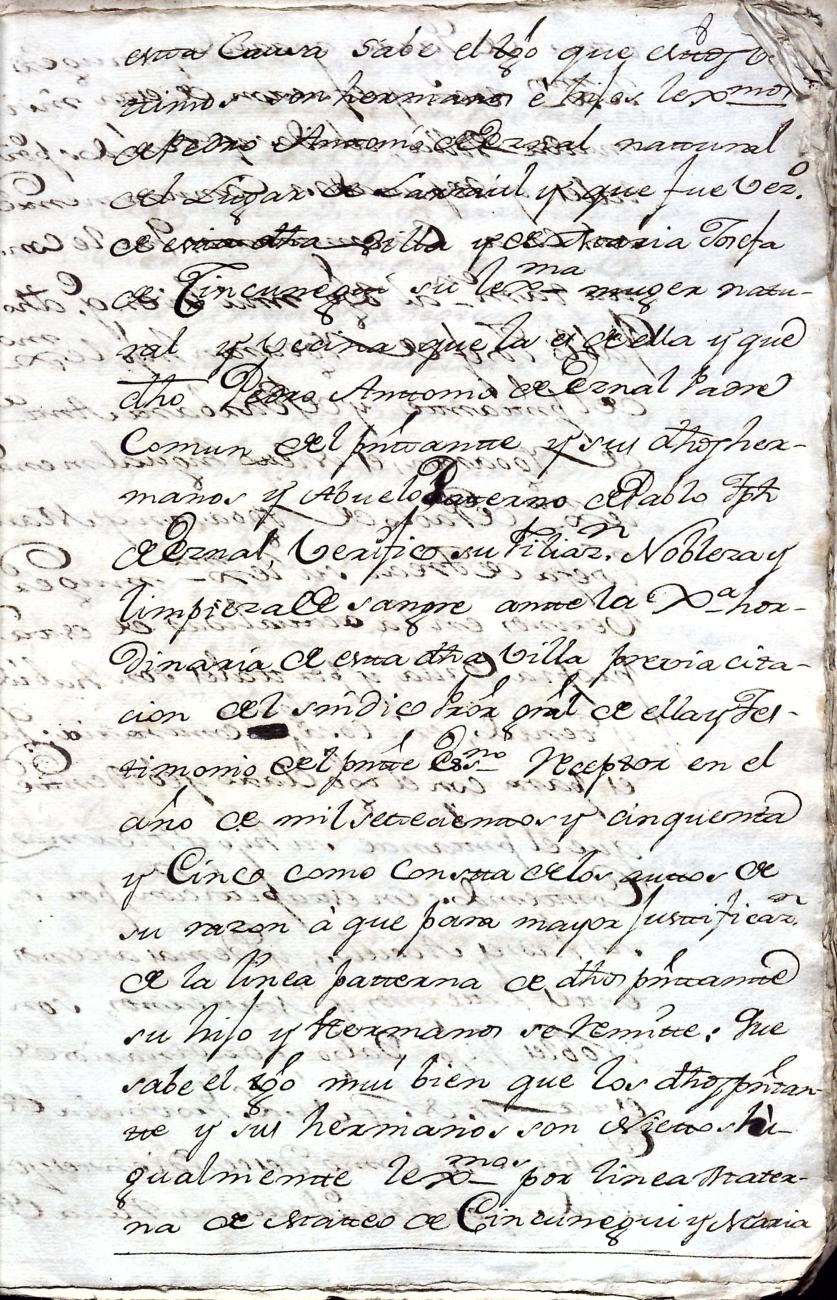 8
esta Causa sabe el tgo que estos
timos son hermanos é hijos lexmos
de Pedro Antonio de Ernal nattural
del Lugar de Larraul y que fue Vezo.
de esta dha Villa y de Maria Josefa
de Cincunegui su lexma muger natu-
ral y Vecina que la es de ella y que
dho Pedro Anttonio de Ernal Padre
Comun del pnttantte y sus dhos her-
manos y Abuelo Paterno de Pablo Jph
de Ernal, Verifico su Filiazn. Nobleza y
limpieza de sangre antte la Xa hor-
dinaria de esta dha Villa previa cita-
cion del sindico Pror gral de ella y Tes-
timonio del pntte Essno Receptor en el
año de mil settecienttos y cinquenta
y Cinco como constta de los auttos de
su razon à que para mayor Justtificazn.
de la linea patterna de dho pnttantte
su hijo y Hermanos se remitte: Que
sabe el tgo mui bien que los dhos pnttan-
tte y sus hermanos son Niettos hi-
gualmentte lexmos por linea Mater-
na de Matteo de Cincunegui y Maria